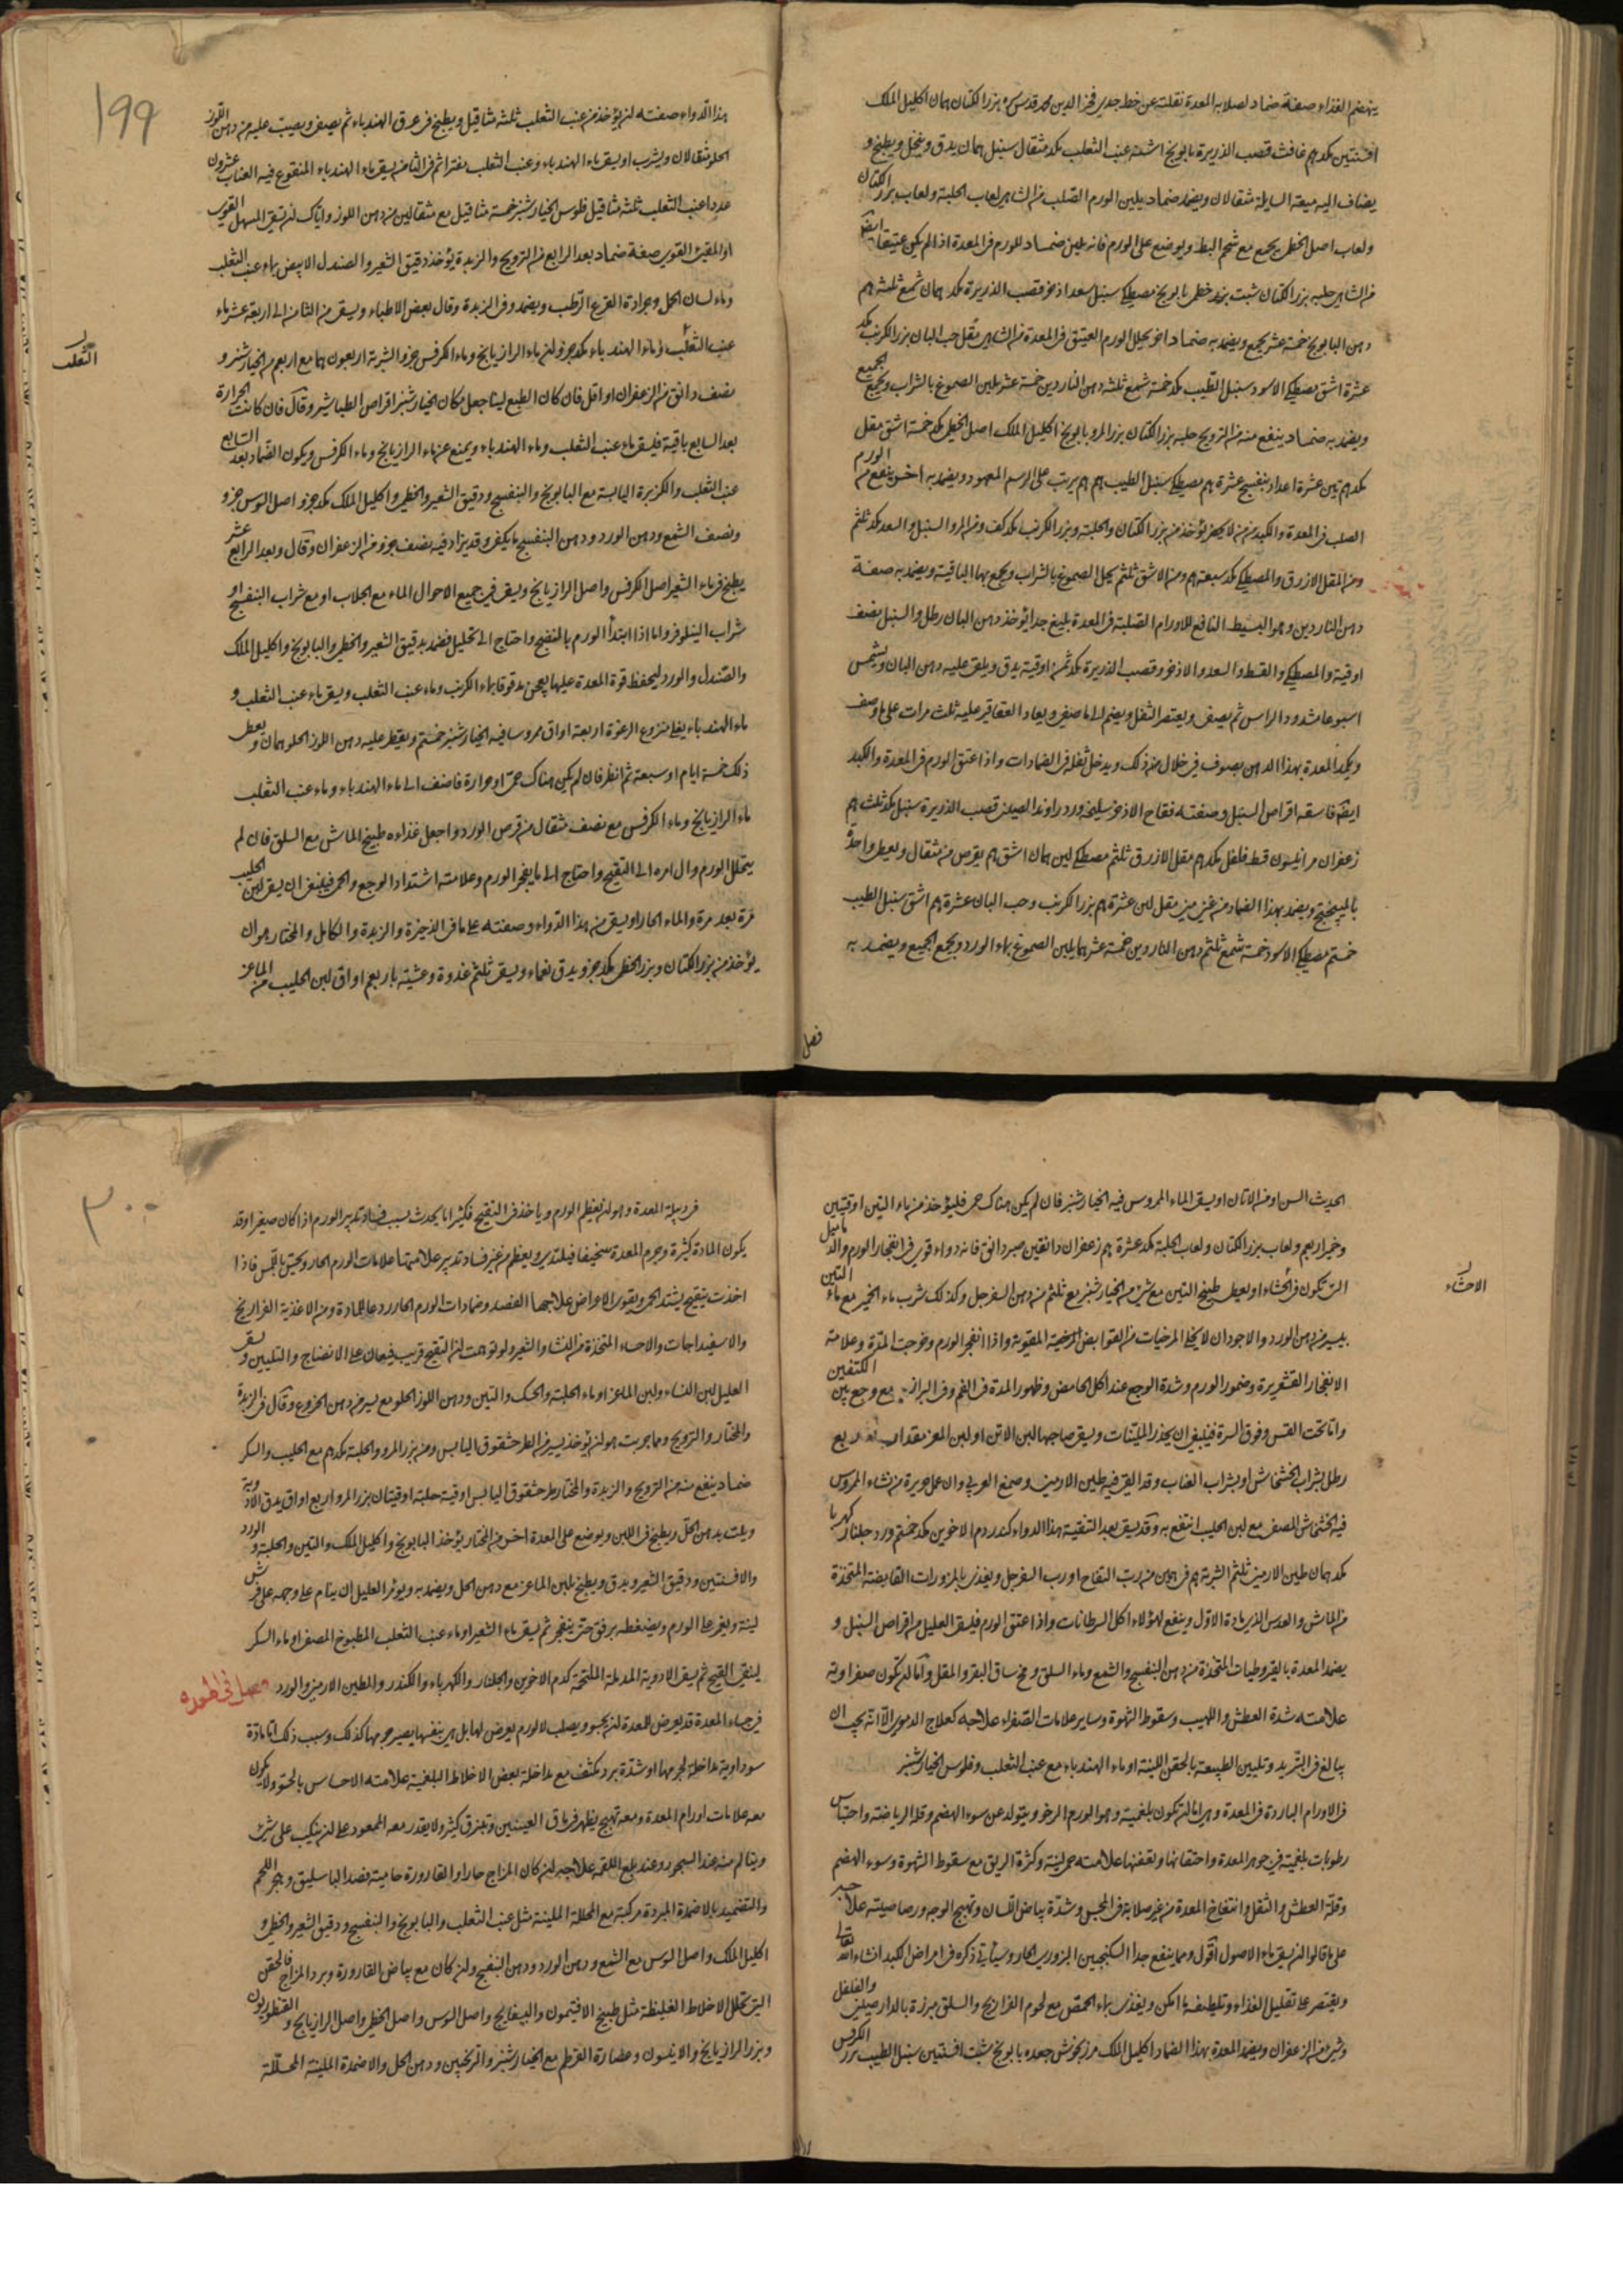 ينهضم الغذاء صفة ضماد لصلابه المعدة نقلته عن خط جدي فخر الدين محمد قدس سره بزر الكتان همان اكليل الملك
افسنتين مكد هم غافث قصب الذريرة بابونج اشنه عنب الثعلب مكد مثقال سنبل همان يدق وينخل ويطبخ و
يضاف اليه ميعة السايلة مثقالان ويضمد ضماد يلين الورم الصلب من الشامل لعاب الحلبة ولعاب بزر الكتان
ولعاب اصل الخطمي يجمع مع شحم البط ويوضع على الورم فانه يلين ضماد للورم في المعدة اذا لم يكن عتيقا ايضا
من الشامل حلبه بزر الكتان شبت بزر خطمي بابونج مصطكي سنبل سعد اذخر قصب الذريرة مكد همان شمع ثلثة هم
دهن البابونج خمسة عشر يجمع ويضمد به ضماد اخر يحلل الورم العتيق في المعدة من الشامل مقل حب البان بزر الكرنب مكد
عشرة اشق مصطكي الاسود سنبل الطيب مكد خمسة شمع ثلثه دهن الناردين خمسة عشر يلين الصموغ بالشراب ويجمع الجميع
ويضمد به ضماد ينفع منه من الترويح حلبه بزر الكتان بزر المرو بابونج اكليل الملك اصل الخطمي مكد خمسة اشق مقل
مكد هم تين عشرة اعداد بنفسج عشرة هم مصطكي سنبل الطيب هم هم يرتب على الرسم المعهود ويضمد به اخر ينفع من الورم
الصلب في المعدة والكبد من لا يحضر يؤخذ من بزر الكتان والحلبة وبزر الكرنب مكد كف ومن المر والسنبل والسعد مكد ثلثم
ومن المقل الازرق والمصطكي مكد سبعة هم ومن الاشق ثلثم يحل الصموغ بالشراب ويجمع بها الباقية ويضمد به صفة
دهن الناردين وهو البسيط النافع للاورام الصلبة في المعدة بليغ جدا يؤخذ دهن البان رطل والسنبل نصف
اوقية والمصطكي والقسط والسعد والاذخر وقصب الذريرة مكد ثمن اوقية يدق ويلقى عليه دهن البان ويشمس
اسبوعا مشدود الراس ثم يصفى ويعتصر الثفل ويضم الى ما صفي ويعاد العقاقير عليه ثلث مرات على ما وصف
ويكمد المعدة بهذا الدهن بصوف في خلال من ذلك ويدخل ثفله في الضمادات واذا عتق الورم في المعدة والكبد
ايضا فاسقه اقراص السنبل وصفته فقاح الاذخر سليخه ورد راوند الصيني قصب الذريرة سنبل مكد ثلث هم
زعفران مر انيسون قسط فلفل مكد هم مقل الازرق ثلثم مصطكي لبن همان اشق هم يقرص من مثقال ويعطى واحدة
بالميبختج ويضمد بهذا الضماد من غنى منى مقل لبن عشرة هم بزر الكرنب وحب البان عشرة هم اشق سنبل الطيب
خمستم مصطكي الاسود خمسة شمع ثلثم دهن الناردين خمسة عشر هما يلين الصموغ بماء الورد ويجمع الجميع ويضمد به
فصل
١٩٩
هذا الدواء صفته ان يؤخذ من عنب الثعلب ثلثة مثاقيل ويطبخ في عرق الهندباء ثم يصفى ويصب عليه من دهن اللوز
الحلو مثقالان ويشرب او يسقى ماء الهندباء وعنب الثعلب مفترا ثم في الثامن يسقى ماء الهندباء المنقوع فيه العناب عشرون
عددا عنب الثعلب ثلثة مثاقيل فلوس الخيارشنبر خمسة مثاقيل مع مثقالين من دهن اللوز واياك ان تسقى المسهل القوي
او المقيئ القوي صفة ضماد بعد الرابع من الترويح والزبدة يؤخذ دقيق الشعير والصندل الابيض بماء عنب الثعلب
وماء لسان الحمل وجرادة القرع الرطب ويضمد وفي الزبدة وقال بعض الاطباء ويسقى من الثامن الى اربعة عشر ماء
عنب الثعلب وماء الهندباء مكد جزو ان ماء الرازيانج وماء الكرفس جزو الشربة اربعون هما مع اربعم من الخيارشنبر و
نصف دانق من الزعفران او اقل فان كان الطبع لينا جعل مكان الخيارشنبر اقراص الطباشير وقال فان كانت الحرارة
بعد السابع باقية فليسق ماء عنب الثعلب وماء الهندباء ويمنع عن ماء الرازيانج وماء الكرفس ويكون الضماد بعد السابع
عنب الثعلب والكزبرة اليابسة مع البابونج والبنفسج ودقيق الشعير والخطمي واكليل الملك مكد جزو اصل السوس جزو
ونصف الشمع ودهن الورد ودهن البنفسج ما يكفي وقد يزاد فيه نصف جزو من الزعفران وقال وبعد الرابع عشر
يطبخ في ماء الشعير اصل الكرفس واصل الرازيانج ويسقى في جميع الاحوال الماء مع الجلاب او مع شراب البنفسج او
شراب النيلوفر واما اذا ابتدأ الورم بالنضج واحتاج الى تحليل فضمد بدقيق الشعير والخطمي والبابونج واكليل الملك
والصندل والورد ليحفظ قوة المعدة عليها يعجن مدقوقا بماء الكرنب وماء عنب الثعلب ويسقى ماء عنب الثعلب و
ماء الهندباء يغلى منزوع الرغوة اربعة اواق ممروسا فيه الخيارشنبر خمستم ويقطر عليه دهن اللوز الحلو همان ويعطى
ذلك خمسة ايام او سبعة ثم انظر فان لم يكن هناك حمى او حرارة فاضف الى ماء الهندباء وماء عنب الثعلب
ماء الرازيانج وماء الكرفس مع نصف مثقال من قرص الورد واجعل غذاءه طبيخ الماش مع السلق فان لم
يتحلل الورم وال امره الى التقيح واحتاج الى ما يفجر الورم وعلامته اشتداد الوجع والحمى فينبغي ان يسقى لبن الحليب
مرة بعد مرة والماء الحار او يسقى من هذا الدواء وصفته على ما في الذخيرة والزبدة والكامل والمختار هو ان
يؤخذ من بزر الكتان وبزر الخطمي مكد جزو يدق نعماء ويسقى ثلثم غدوة وعشية باربعم اواق لبن الحليب من الماعز
الثعلب
الحديث السن او من الاتان او يسقى الماء الممروس فيه الخيارشنبر فان لم يكن هناك حمى فليؤخذ من ماء التين اوقيتين
وخمير اربعم ولعاب بزر الكتان ولعاب الحلبة مكد عشرة هم زعفران دانقين صبر دانق فانه دواء قوي في انفجار الورم والدماميل
التي تكون في الحشاء او يعطى طبيخ التين مع شئ من الخيارشنبر مع ثلثم من دهن السفرجل وكذلك شرب ماء الخمير مع ماء التين
بيسير من دهن الورد والاجود ان لا يخلي المرخيات من القوابض المرخية المقوية واذا انفجر الورم وخرجت المدة وعلامة
الانفجار القشعريرة وضمور الورم وشدة الوجع عند اكل الحامض وظهور المدة في الفم وفي البراز مع وجع بين الكتفين
واما تحت القس وفوق السرة فينبغي ان يحذر المليّنات ويسقى صاحبها لبن الاتن او لبن المعز مقدار ربع
رطل بشراب الخشخاش او بشراب العناب وقد القي فيه طين الارمني وصمغ العربي وان عمل حريرة من نشاء الممروس
فيه الخشخاش المصفى مع لبن الحليب انتفع به وقد يسقى بعد التنقية هذا الدواء كندر دم الاخوين مكد خمستم ورد جلنار كهربا
مكد همان طين الارمني ثلثم الشربة هم في همين من رب التفاح او رب السفرجل ويغذى بالمزورات القابضة المتخذة
من الماش والعدس الا زيادة الاول وينفع لهؤلاء اكل السرطانات واذا عتق الورم فليسق العليل من اقراص السنبل و
يضمد المعدة بالقيروطيات المتخذة من دهن البنفسج والشمع وماء السلق ومخ ساق البقر والمقل واما ان تكون صفراوية
علامته شدة العطش واللهيب وسقوط الشهوة وساير علامات الصفراء علاجه كعلاج الدموي الا انه يجب ان
يبالغ في التبريد وتليين الطبيعة بالحقن اللينة او ماء الهندباء مع عنب الثعلب وفلوس الخيارشنبر
في الاورام الباردة في المعدة وهي اما ان تكون بلغمية وهو الورم الرخو ويتولد عن سوء الهضم وقلة الرياضة واحتباس
رطوبات بلغمية في جوهر المعدة واحتقانها وتعفنها علامته حمى لينة وكثرة الريق مع سقوط الشهوة وسوء الهضم
وقلة العطش والثقل وانتفاخ المعدة من غير صلابة في المجس وشدة بياض اللسان وتهيج الوجه ورصاصيته علاجه
على ما قالوا ان يسقى ماء الاصول اقول ومما ينفع جدا السكنجبين البزوري الحار وسيأتي ذكره في امراض الكبد انشاء الله تعالى
ويقتصر على تقليل الغذاء وتلطيفه ما امكن ويغذى بماء الحمص مع لحوم الفراريج والسلق مبزرة بالدارصيني والفلفل
وشئ من الزعفران ويضمد المعدة بهذا الضماد اكليل الملك مرزنجوش جعده بابونج شبت افسنتين سنبل الطيب بزر الكرفس
الاحشاء
٣٠٠
في دبيلة المعدة وهو ان يعظم الورم وياخذ في التقيح فكثيرا ما يحدث بسبب فساد تدبير الورم اذا كان صغيرا وقد
يكون المادة كثيرة وجرم المعدة سخيفا فيلتدي ويعظم من غير فساد تدبير علامتها علامات الورم الحار ويحس باللمس فاذا
اخذت يتقيح يشتد الحمى ويقوى الاعراض علاجها الفصد وضمادات الورم الحار ردعا للمادة ومن الاغذية الفراريخ
والاسفيداجات والاحساء المتخذة من النشا والشعير ولو توهمت ان التقيح قريب فيعان على الانضاج والتليين ويسقى
العليل لبن النساء ولبن الماعز او ماء الحلبة والحسك والتين ودهن اللوز الحلو مع يسير من دهن الخروع وقال في الزبدة
والمختار والترويح ومما جربت هو ان يؤخذ يسير من الطرحشقوق اليابس ومن بزر المرو والحلبة مكد هم مع الحليب والسكر
ضماد ينفع منه من الترويح والزبدة والمختار طرحشقوق اليابس اوقية حلبة اوقيتان بزر المرو اربع اواق يدق الادوية
ويلت بدهن الخل ويطبخ في اللبن ويوضع على المعدة اخر من المختار يؤخذ البابونج واكليل الملك والتين والحلبة والورد
والافسنتين ودقيق الشعير ويدق ويطبخ بلبن الماعز مع دهن الحل ويضمد به ويؤمر العليل ان ينام على وجهه على فرش
لينة ويغمر على الورم ويضغطه برفق حتى ينفجر ثم يسقى ماء الشعير او ماء عنب الثعلب المطبوخ المصفى او ماء السكر
لينقى القيح ثم يسقى الادوية المدملة الملتحمة كدم الاخوين والجلنار والكهرباء والكندر والطين الارمني والورد
في جساء المعدة قد يعرض للمعدة ان يجسو ويصلب لا لورم يعرض لها بل هي بنفسها يصير جرمها كذلك وسبب ذلك اما مادة
سوداوية مداخلة لجرمها او شدة برد مكثف مع مداخلة بعض الاخلاط البلغمية علامته الاحساس بالجسو ولا يكون
معه علامات اورام المعدة ومعه تهيج يظهر في ماق العينين وتبزق كثير ولا يقدر معه الممعود على ان ينكب على شئ
ويتالم منه عند السجود وعند بلع اللقمة علاجه ان كان المزاج حارا والقارورة حامية فصد الباسليق وهجر اللحم
والتضميد بالاضمدة المبردة مركبة مع المحللة الملينة مثل عنب الثعلب والبابونج والبنفسج ودقيق الشعير والخطمي و
اكليل الملك واصل السوس مع الشمع ودهن الورد ودهن البنفسج وان كان مع بياض القارورة وبرد المزاج فالحقن
التي تحلل الاخلاط الغليظة مثل طبيخ الافتيمون والبسفايج واصل السوس واصل الخطمي واصل الرازيانج والقنطوريون
وبزر الرازيانج والانيسون وعصارة القرطم مع الخيارشنبر والترنجبين ودهن الحل والاضمدة الملينة المحللة